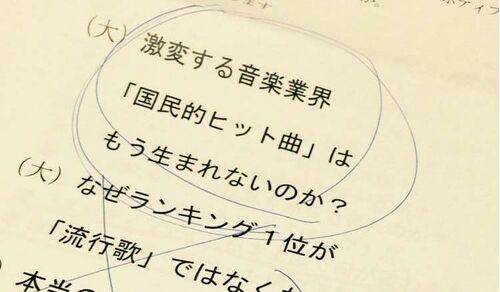 (大) 激変する音楽業界
「国民的ヒット曲」は
もう生まれないのか？
(大) なぜランキング1位が
「流行歌」ではなく
本当の